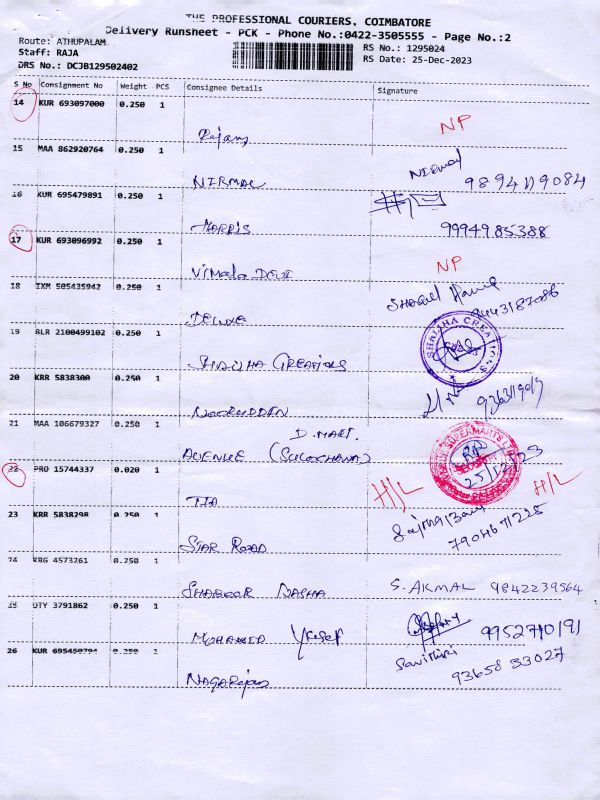 THE PROFESSIONAL COURIERS, COIMBATORE
Delivery Runsheet - PCK - Phone No.:0422-3505555 - Page No.:2
Route: ATHUPALAM
Staff: RAJA
DRS No.: DCJB129502402
RS No.: 1295024
RS Date: 25-Dec-2023
S No Consignment No Weight PCS Consignee Details Signature
14 KUR 693097000 0.250 1
Rajan NP
15 MAA 862920764 0.250 1
NIRMAL Nirmal
16 KUR 695479891 0.250 1
HARRIS 9994985388
17 KUR 693096992 0.250 1
Vimala DEVI NP
18 IXM 505435942 0.250 1
DELUXE
19 BLR 2100499102 0.250 1
SHALIHA CREATIONS SHALIHA CREATIONS
20 KRR 5838300 0.250 1
NOORUDDEN
21 MAA 106679327 0.250 1
D.MART
AVENUE (SULOCHANA) 25/12/23
22 PRO 15744337 0.020 1 H/L H/L
TTA
23 KRR 5838298 0.250 1
STAR ROAD 7904671225
24 KRG 4573261 0.250 1
SHABOOR BASHA S. AKMAL 9842239564
25 OTY 3791862 0.250 1
MOHAMED Yusef 9952710191
26 KUR 0.250 1
NAGARajan Savithiri 93658 33027